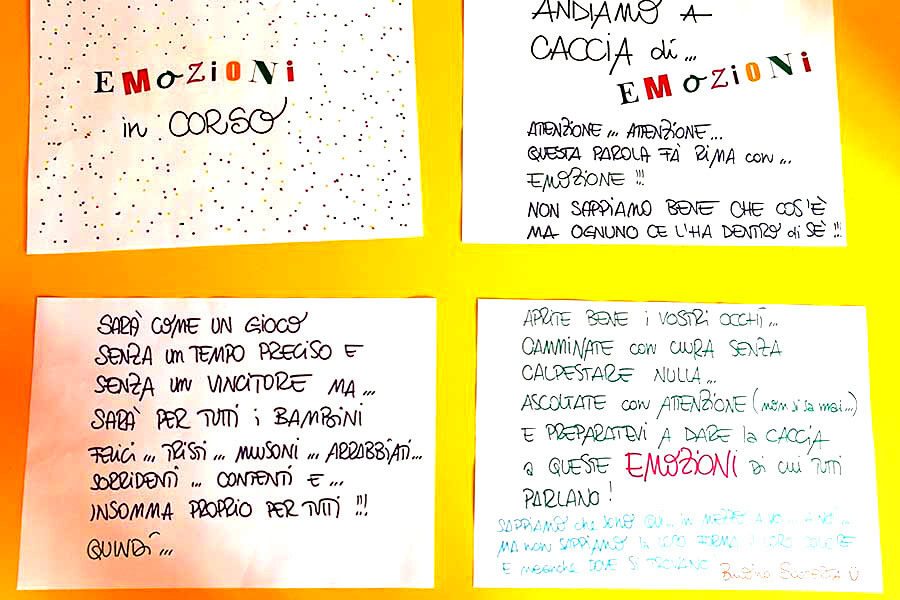 EMOZIONI
in CORSO
ANDIAMO A
CACCIA di...
EMOZIONI
ATTENZIONE... ATTENZIONE...
QUESTA PAROLA FÀ RIMA con...
EMOZIONE !!!
NON SAPPIAMO BENE CHE COS'È
MA OGNUNO CE L'HA DENTRO di SÈ !!!
SARÀ COME UN GIOCO
SENZA un TEMPO PRECISO E
SENZA un VINCITORE MA...
SARÀ PER TUTTI i BAMBINI
FELICI... TRISTI... MUSONI... ARRABBIATI...
SORRIDENTI... CONTENTI E...
INSOMMA PROPRIO PER TUTTI !!!
QUINDI...
APRITE BENE i VOSTRI OCCHI...
CAMMINATE con CURA SENZA
CALPESTARE NULLA...
ASCOLTATE con ATTENZIONE (non si sa mai...)
E PREPARATEVI A DARE la CACCIA
a QUESTE EMOZIONI DI CUI TUTTI
PARLANO!
SAPPIAMO che SONO QUI... in MEZZO A VOI... A NOI...
MA non SAPPIAMO la LORO FORMA il LORO COLORE
E neanche DOVE SI TROVANO Buona Scoperta